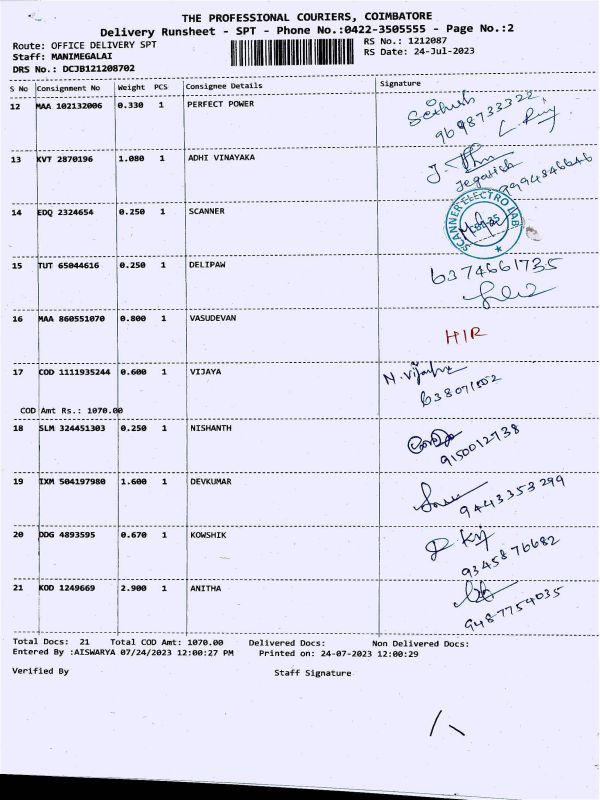 THE PROFESSIONAL COURIERS, COIMBATORE
Delivery Runsheet - SPT - Phone No.:0422-3505555 - Page No.:2
Route: OFFICE DELIVERY SPT
RS No.: 1212087
Staff: MANIMEGALAI
RS Date: 24-Jul-2023
DRS No.: DCJB121208702
S No Consignment No Weight PCS Consignee Details Signature
12 MAA 102132006 0.330 1 PERFECT POWER
9698733322
13 KVT 2870196 1.080 1 ADHI VINAYAKA
Jegadish
9994846646
14 EDQ 2324654 0.250 1 SCANNER
SCANNER ELECTRO LAB
15 TUT 65044616 0.250 1 DELIPAW
6374661735
16 MAA 860551070 0.800 1 VASUDEVAN
HIR
17 COD 1111935244 0.600 1 VIJAYA
COD Amt Rs.: 1070.00
18 SLM 324451303 0.250 1 NISHANTH
9150012738
19 IXM 504197980 1.600 1 DEVKUMAR
9443353299
20 DDG 4893595 0.670 1 KOWSHIK
9345876682
21 KOD 1249669 2.900 1 ANITHA
9487754035
Total Docs: 21 Total COD Amt: 1070.00 Delivered Docs: Non Delivered Docs:
Entered By :AISWARYA 07/24/2023 12:00:27 PM Printed on: 24-07-2023 12:00:29
Verified By Staff Signature